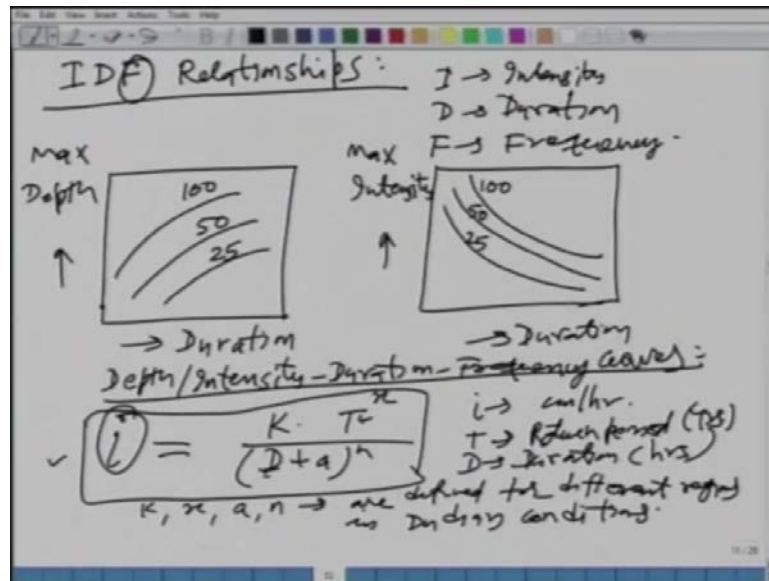 File Edit View Insert Actions Tools Help
IDF Relationships:
I → Intensity
D → Duration
F → Frequency.
Max Depth ↑
100
50
25
→ Duration
Max Intensity ↑
100
50
25
→ Duration
Depth/Intensity-Duration-Frequency curves:
i = K. T^x / (D+a)^n
i → cm/hr.
T → Return period (yrs)
D → Duration (hrs)
K, x, a, n → are defined for different regions
in Indian conditions.
11/28